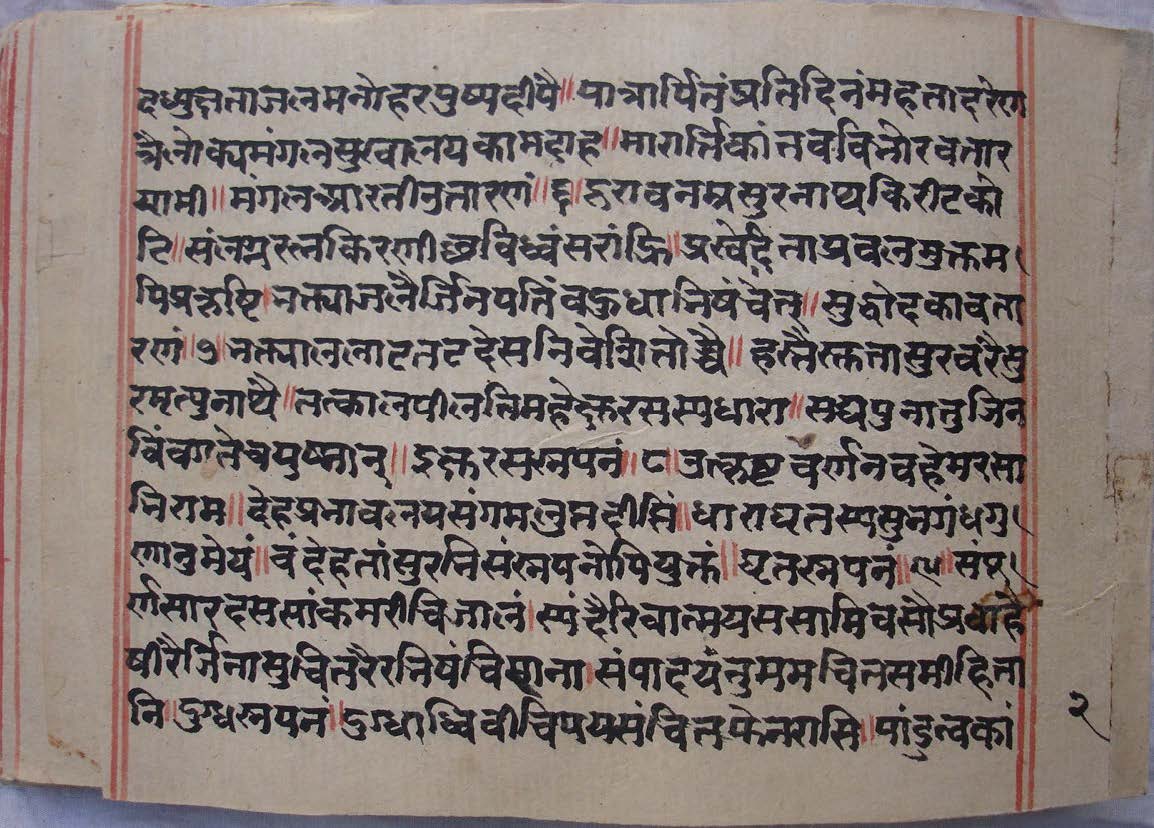 दध्युज्ञताजलमनोहरपुष्पदीपै॥ पात्रार्पितंप्रतिदिनंमहतादरेण
त्रैलोक्यमंगलसुखालयकामदाह॥मारार्त्तिकांतवविभोरवतार
यामी॥ मंगलआरतीनुतारणं॥६॥दूरावनम्रसुरनाथकिरीटको
टि॥संलग्नरत्नकिरणछविध्वंसरांह्रि॥प्रस्वेद मुक्तम
पिप्रकृष्टि।भक्त्याजलैर्जिनपतिंवहुधाभिषंचेत्॥ सुद्धोदकावता
रणं॥७॥भक्त्याललाटतटदेसनिवेशितोच्चै॥ हस्तै सुरवरैसु
रमृत्युनाथै॥तत्कालपीलतिमहेक्षुरसस्यधारा॥सद्यपुनातुजिन
विंवगतेवयुष्मान्॥इक्षुरसस्नपनं॥८॥उत्कृष्टवर्णनवहेमरसा
भिराम॥देहप्रभावलयसंगमलुप्तदीप्तिं॥धाराघृतस्यसुभगंधगु
णानुमेयं॥वंदेहतांसुरभिसंस्नपनोपियुक्तं॥घृतस्नपनं॥९॥संपू
र्णसारदससांकमरीचिजालं।स्यंदैरिवात्मयससामिवसौप्रवाहै
षीरैर्जिनासुचितरैरभिषंचिमाना।संपादयंतुममचितसमीहिता
नि॥दुग्धस्नपनं॥दुग्धाध्विवीचिपयसंचितफेनरासि॥पांडुत्वकां
२